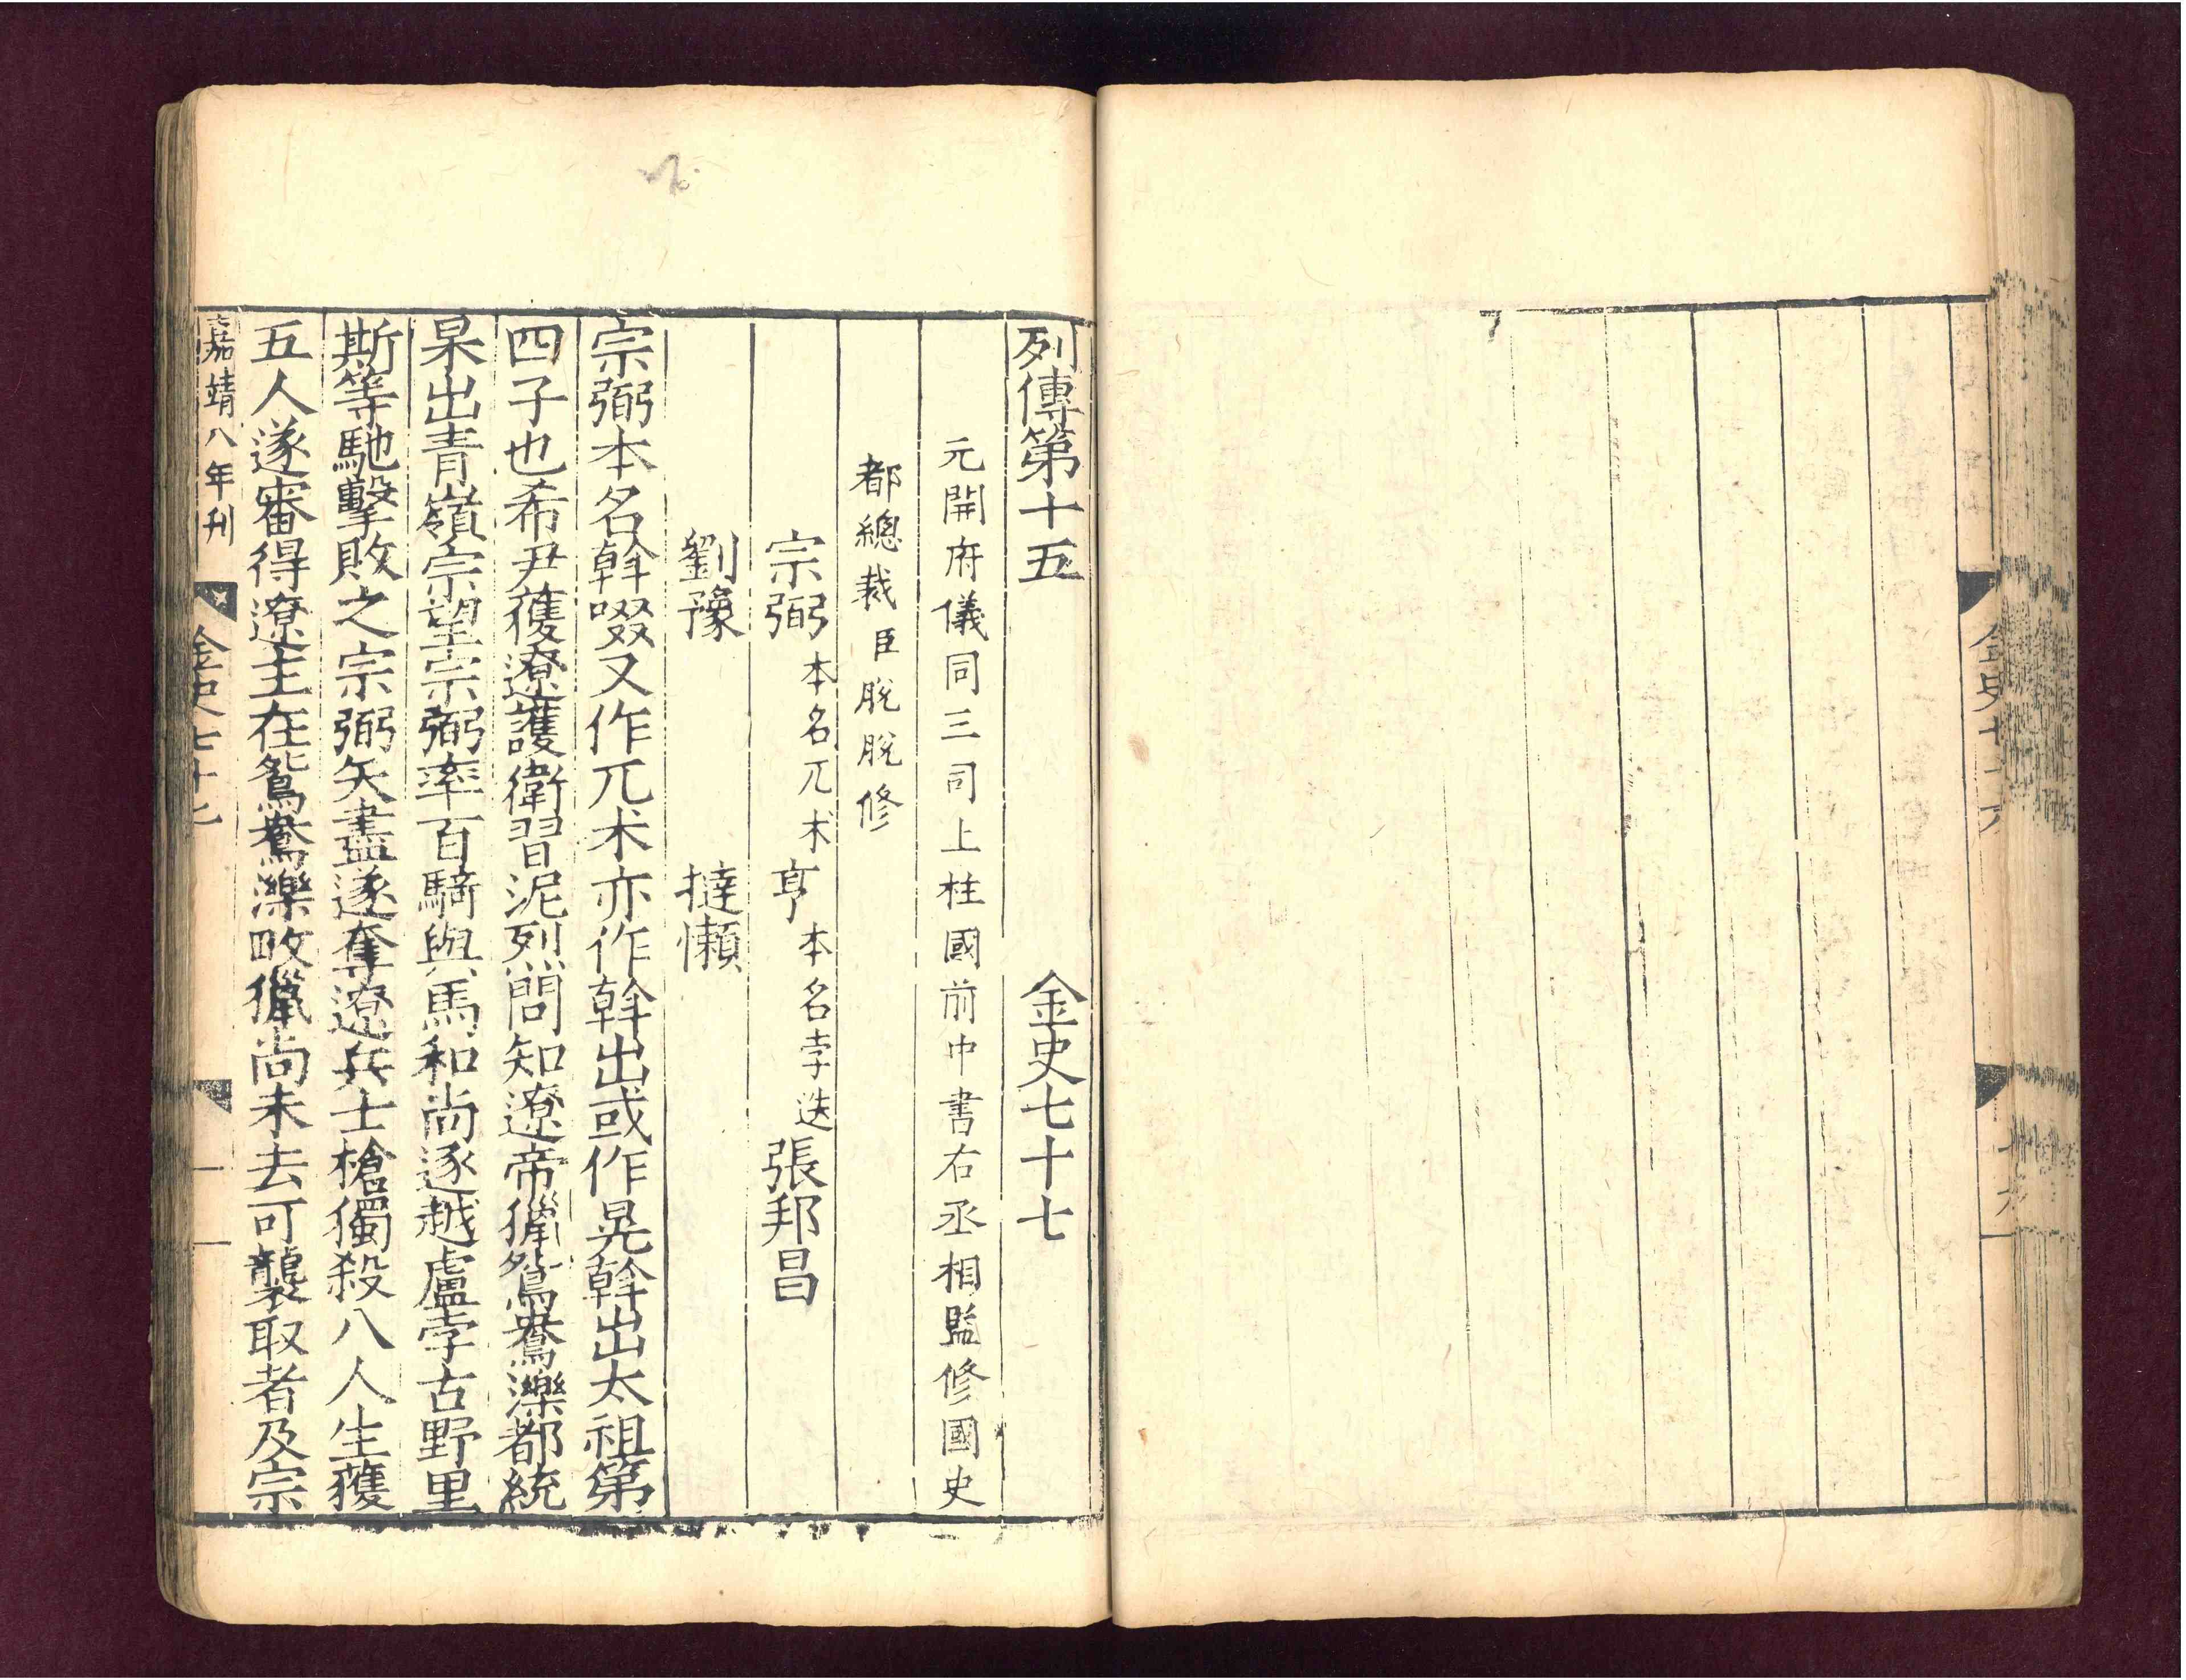 金史七十六
列傳第十五 金史七十七
元開府儀同三司上柱國前中書右丞相監修國史
都總裁臣脫脫修
宗弼本名兀朮 亨本名孛迭 張邦昌
劉豫 撻懶
宗弼本名斡啜又作兀朮亦作斡出或作晃斡出太祖第
四子也希尹獲遼護衛習泥烈問知遼帝獵鴛鴦濼都統
杲出青嶺宗望宗弼率百騎與馬和尚逐越盧孛古野里
斯等馳擊敗之宗弼矢盡遂奪遼兵士槍獨殺八人生獲
五人遂審得遼主在鴛鴦濼畋獵尚未去可襲取者及宗
嘉靖八年刊 金史七十七 一